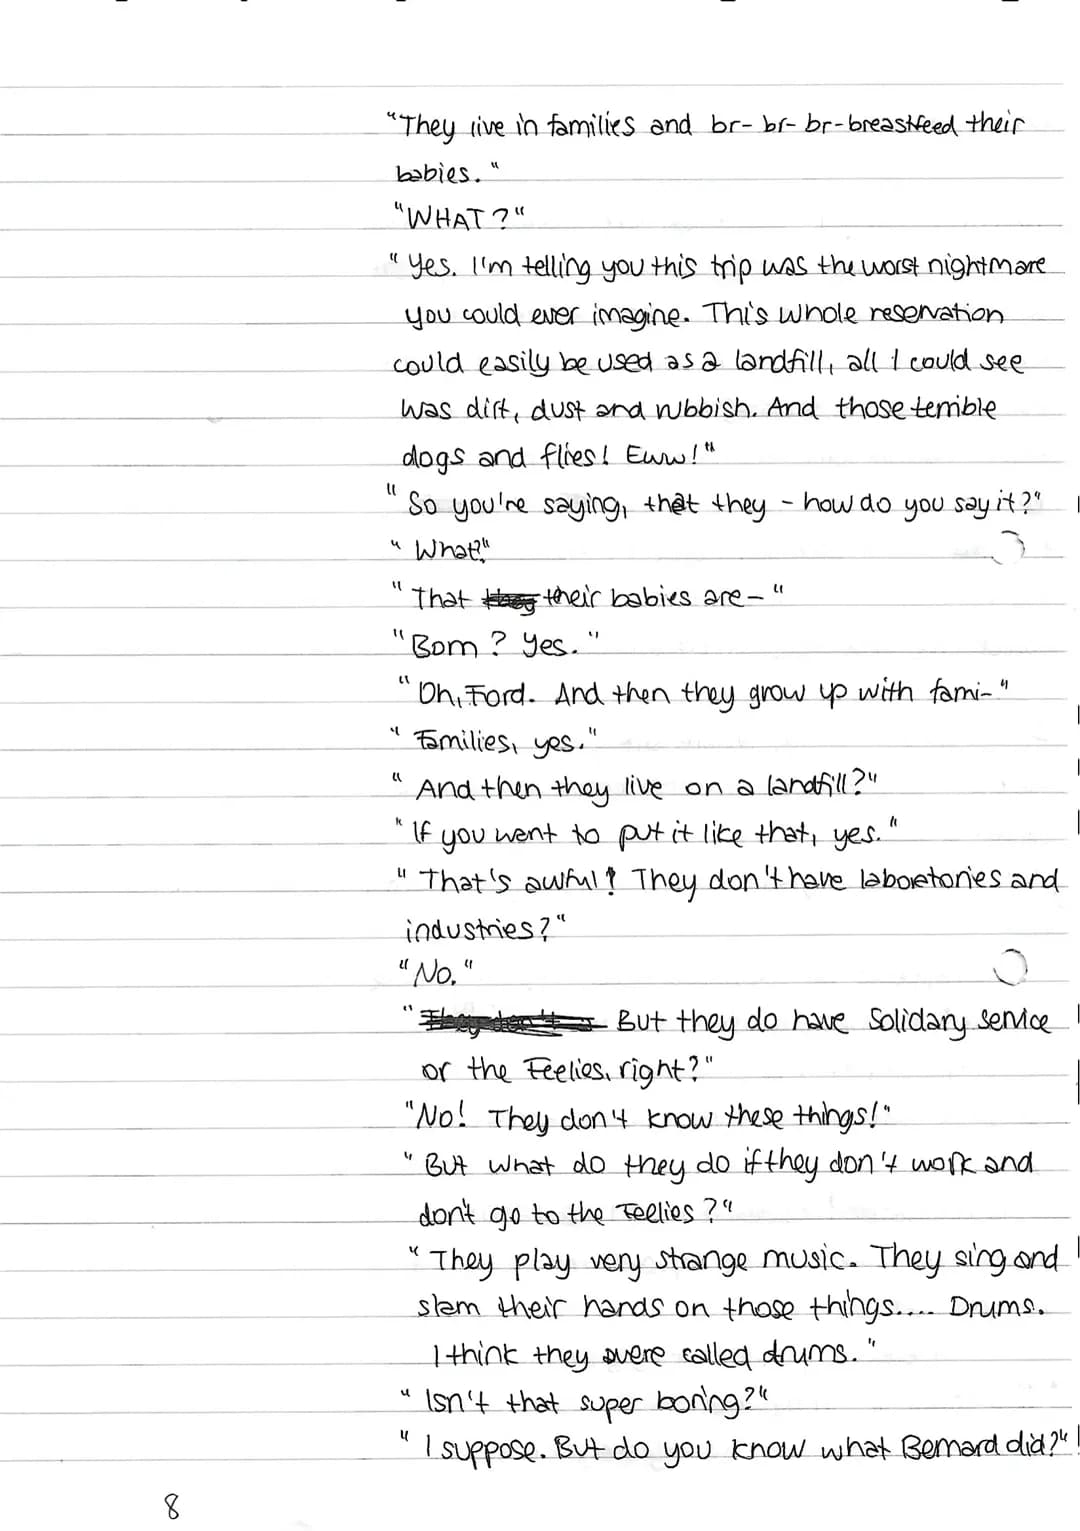 "They live in families and br- br- br-breastfeed their
babies."
"WHAT?"
"Yes. I'm telling you this trip was the worst nightmare
you could ever imagine. This whole reservation
could easily be used as a landfill, all I could see
was dirt, dust and rubbish. And those terrible
dogs and flies! Eww!"
"So you're saying, that they - how do you say it?"
"What?"
"That their babies are-"
"Born? Yes."
"Oh, Ford. And then they grow up with fami-"
"Families, yes."
"And then they live on a landfill?"
"If you want to put it like that, yes."
"That's awful! They don't have laboretories and
industries?"
"No."
"But they do have Solidary service
or the Feelies, right?"
"No! They don't know these things!"
"But what do they do if they don't work and
don't go to the Feelies?"
"They play very strange music. They sing and
slam their hands on those things.... Drums.
I think they were called drums."
"Isn't that super boring?"
"I suppose. But do you know what Bernard did?"
8